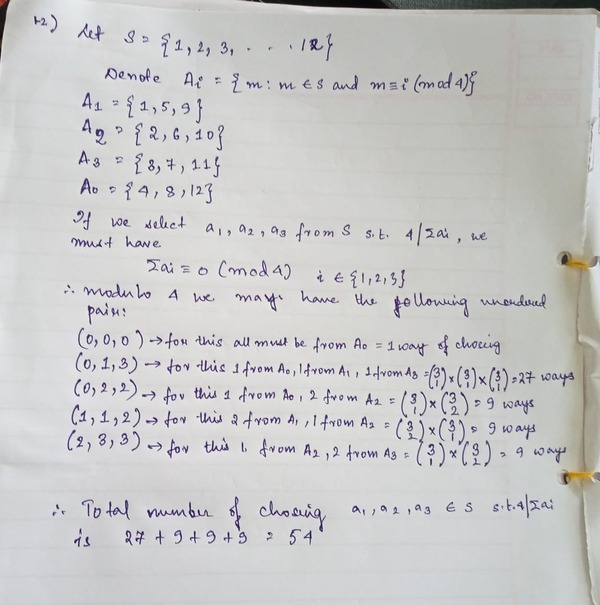 12) Let S = {1, 2, 3, . . . . 12}
Denote Ai = {m : m ∈ S and m ≡ i (mod 4)}
A1 = {1, 5, 9}
A2 = {2, 6, 10}
A3 = {3, 7, 11}
A0 = {4, 8, 12}
If we select a1, a2, a3 from S s.t. 4/Σai, we
must have
Σai ≡ 0 (mod 4) i ∈ {1, 2, 3}
∴ modulo 4 we may have the following unordered
pairs:
(0, 0, 0) → for this all must be from A0 = 1 way of chosing
(0, 1, 3) → for this 1 from A0, 1 from A1, 1 from A3 = (3 1) × (3 1) × (3 1) = 27 ways
(0, 2, 2) → for this 1 from A0, 2 from A2 = (3 1) × (3 2) = 9 ways
(1, 1, 2) → for this 2 from A1, 1 from A2 = (3 2) × (3 1) = 9 ways
(2, 3, 3) → for this 1 from A2, 2 from A3 = (3 1) × (3 2) = 9 ways
∴ Total number of chosing a1, a2, a3 ∈ S s.t. 4/Σai
is 27 + 9 + 9 + 9 = 54